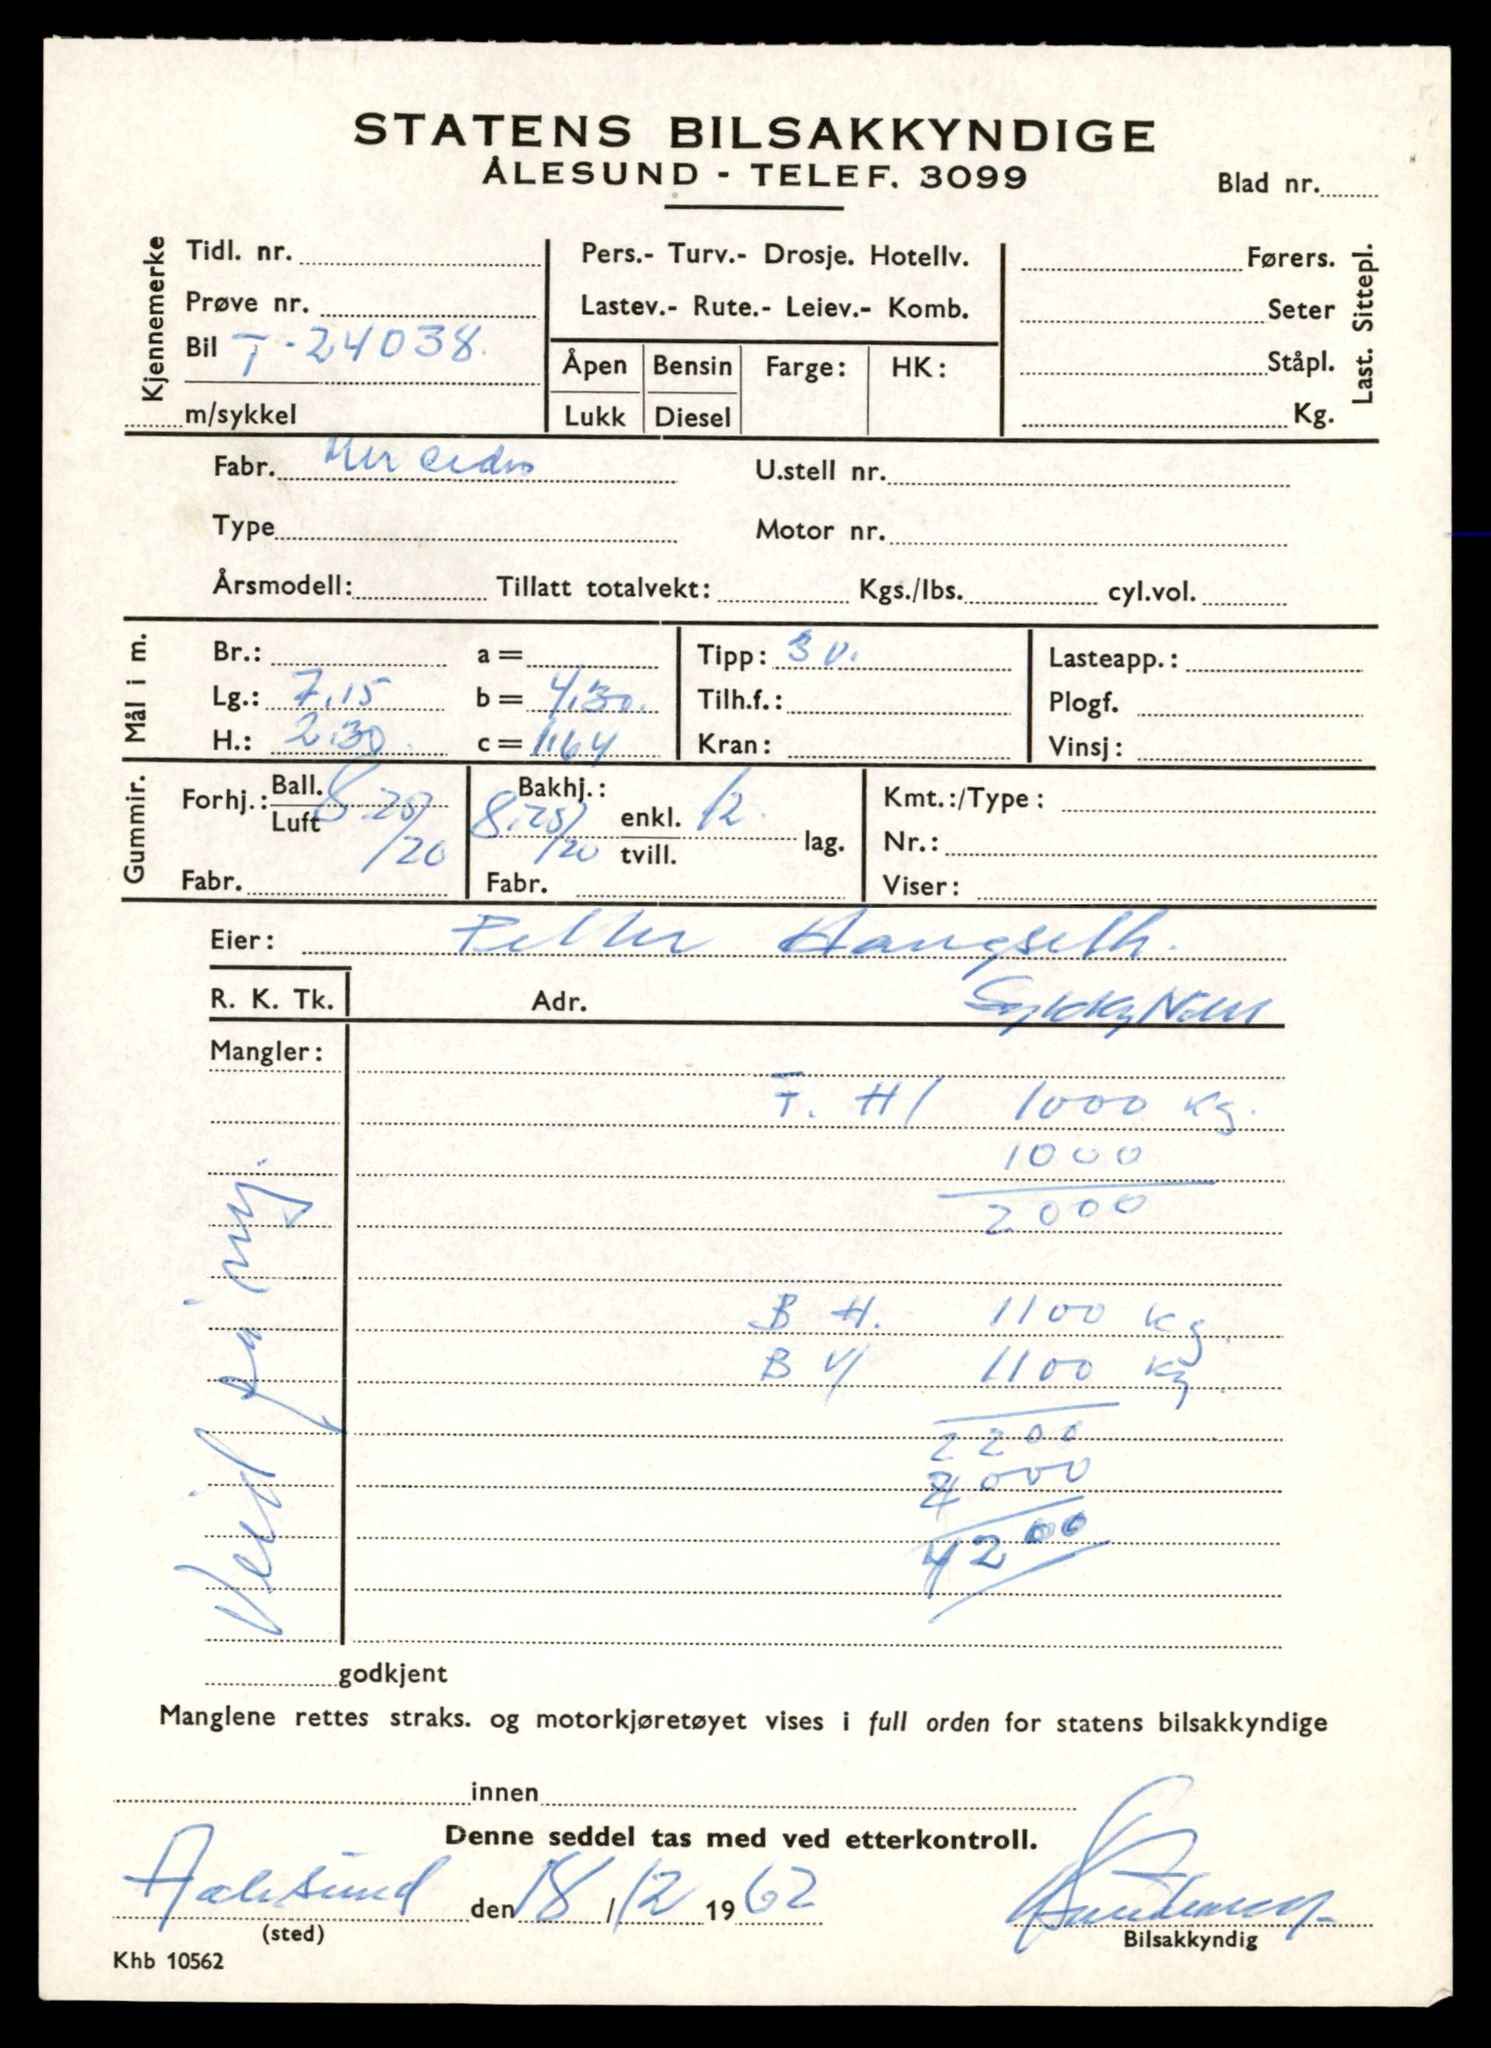 STATENS BILSAKKYNDIGE
ÅLESUND - TELEF. 3099
Blad nr.
Kjennemerke
Tidl. nr.
Prøve nr.
Bil T-24038.
m/sykkel
Pers.- Turv.- Drosje. Hotellv.
Lastev.- Rute.- Leiev.- Komb.
Åpen Bensin Farge: HK:
Lukk Diesel
Førers.
Seter
Ståpl.
Kg.
Last. Sittepl.
Fabr. Mercedes U.stell nr.
Type Motor nr.
Årsmodell: Tillatt totalvekt: Kgs./lbs. cyl.vol.
Mål i m.
Br.: a = Tipp: 3 v. Lasteapp.:
Lg.: 7.15 b = 4.30. Tilh.f.: Plogf.
H.: 2.30. c = 1.64 Kran: Vinsj:
Gummir.
Forhj.: Ball. Luft 8.25/
/20
Fabr.
Bakhj.: 8.25/ enkl. 12. lag.
/20 tvill.
Fabr.
Kmt.:/Type:
Nr.:
Viser:
Eier: Petter Haugseth.
R. K. Tk. Adr.
Mangler:
F. H/ 1000 kg.
1000
2000
B H. 1100 kg.
B V/ 1100 kg.
2200
2000
4200
Veid på
godkjent
Manglene rettes straks. og motorkjøretøyet vises i full orden for statens bilsakkyndige
innen
Denne seddel tas med ved etterkontroll.
Aalesund den 18/12 1962
(sted)
Bilsakkyndig
Khb 10562